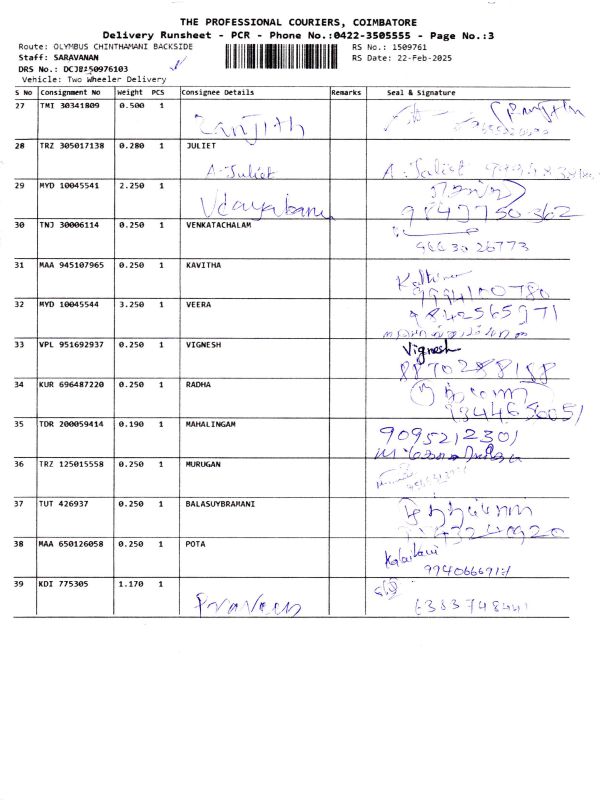 THE PROFESSIONAL COURIERS, COIMBATORE
Delivery Runsheet - PCR - Phone No.:0422-3505555 - Page No.:3
Route: OLYMBUS CHINTHAMANI BACKSIDE RS No.: 1509761
Staff: SARAVANAN RS Date: 22-Feb-2025
DRS No.:
Vehicle: Two Wheeler Delivery
S No Consignment No Weight PCS Consignee Details Remarks Seal & Signature
27 TMI 30341809 0.500 1 Ranjith
28 TRZ 305017138 0.280 1 JULIET
A. Juliet A. Juliet
29 MYD 10045541 2.250 1 Udayabanu
9849750362
30 TNJ 30006114 0.250 1 VENKATACHALAM
31 MAA 945107965 0.250 1 KAVITHA
9994100780
32 MYD 10045544 3.250 1 VEERA 9842565971
33 VPL 951692937 0.250 1 VIGNESH Vignesh
8870288188
34 KUR 696487220 0.250 1 RADHA
35 TDR 200059414 0.190 1 MAHALINGAM 9095212301
36 TRZ 125015558 0.250 1 MURUGAN
37 TUT 426937 0.250 1 BALASUYBRAMANI
38 MAA 650126058 0.250 1 POTA
39 KDI 775305 1.170 1 Praveen
6383748441